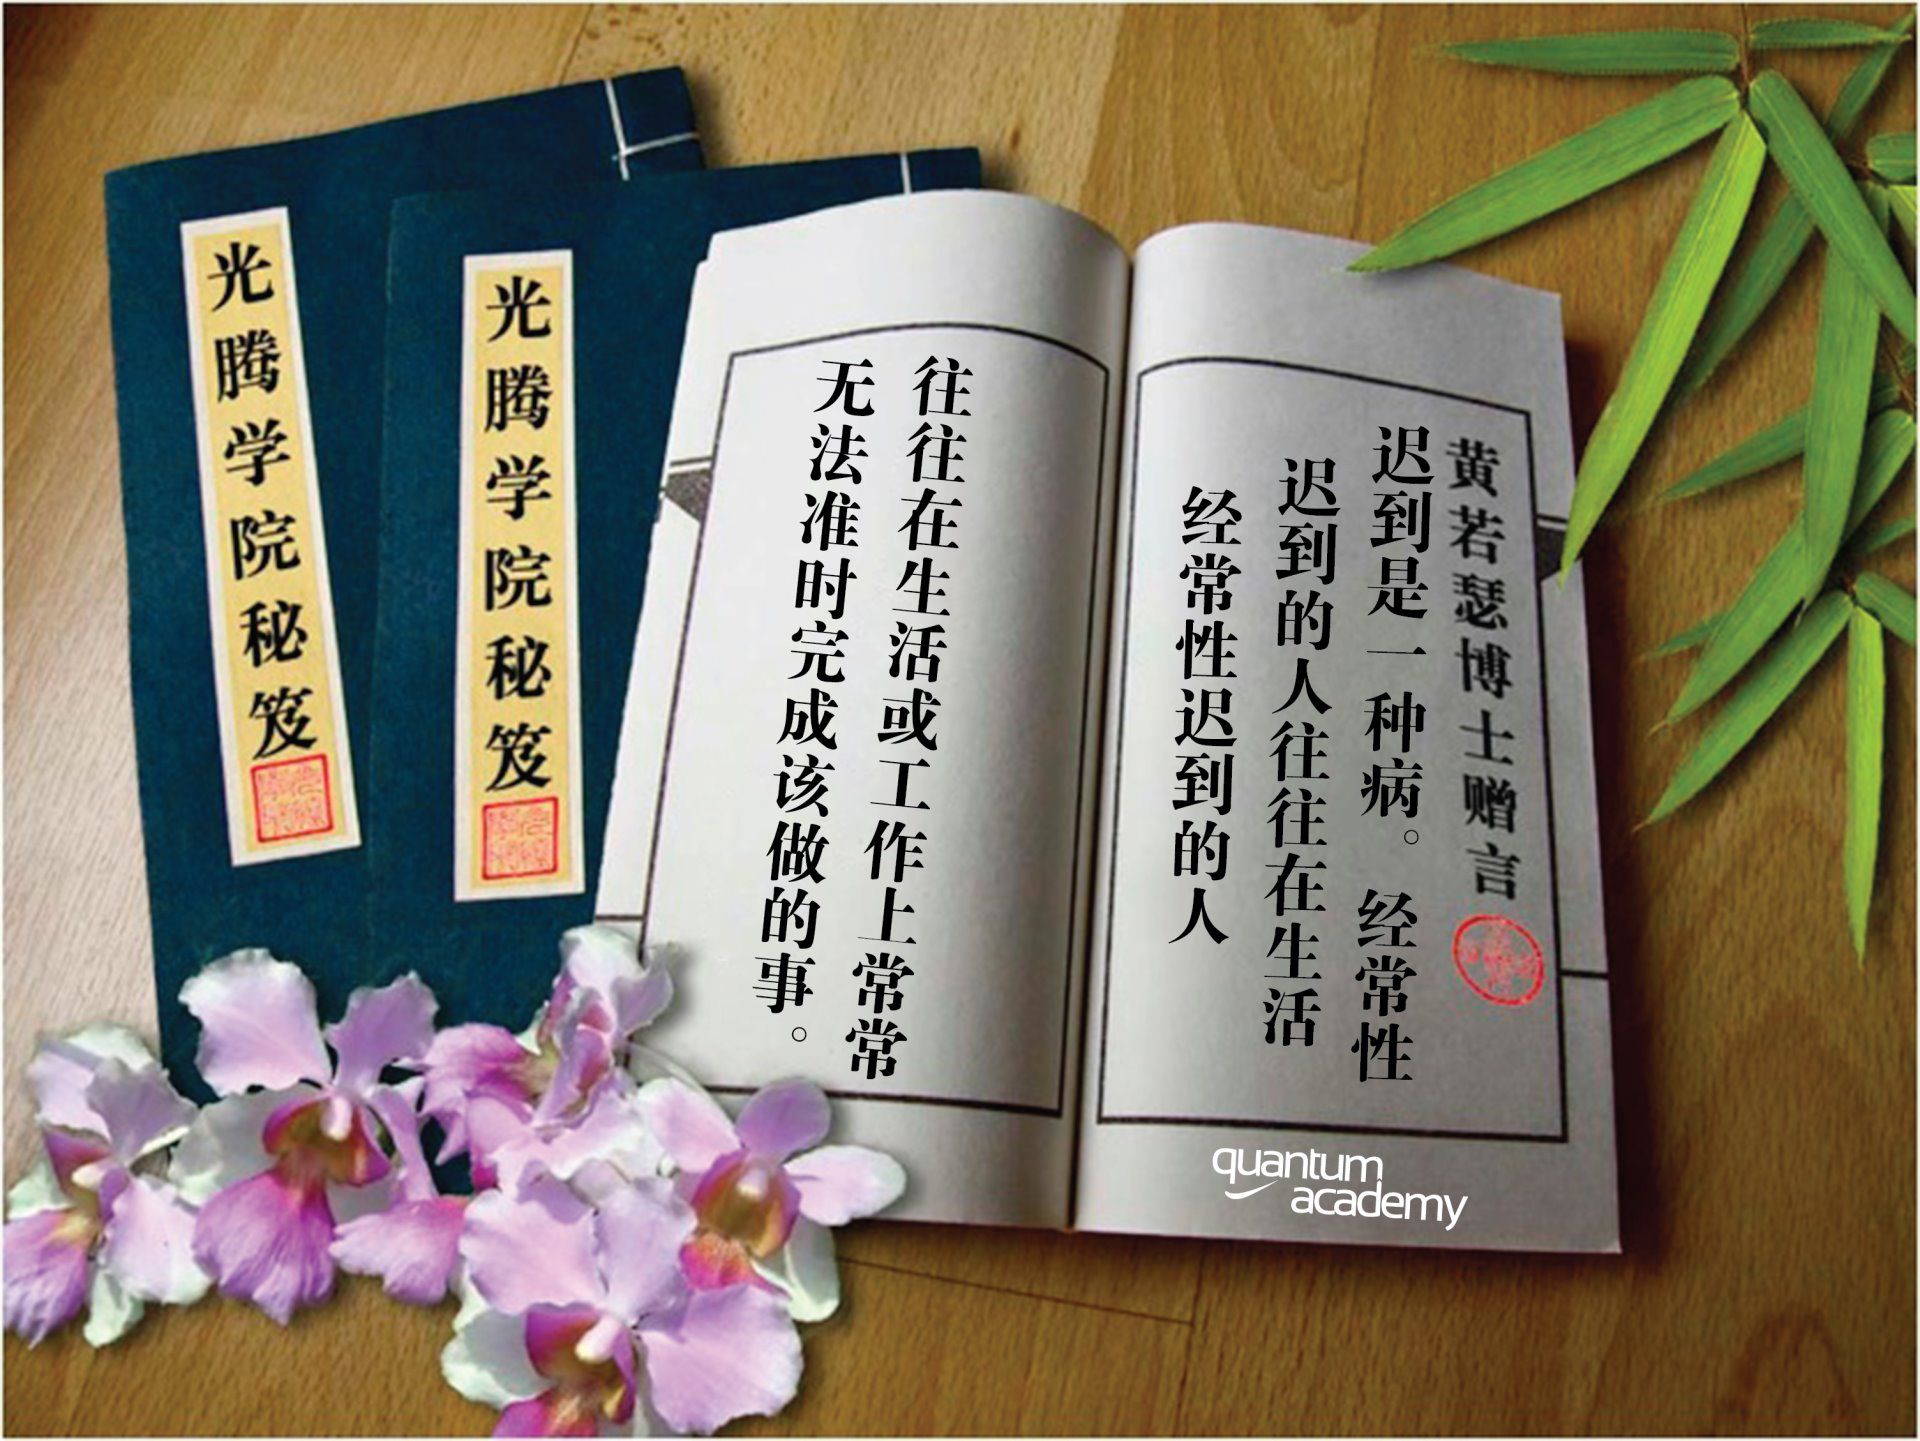 黄若瑟博士赠言
迟到是一种病。 经常性
迟到的人往往在生活
经常性迟到的人
往往在生活或工作上常常
无法准时完成该做的事。
光腾学院秘笈
光腾学院秘笈
quantum
academy